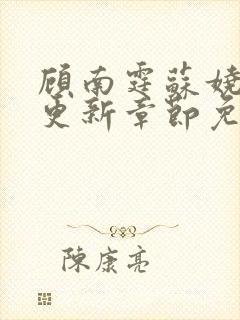 顾南霆苏娆
更新章节免
陈康亮